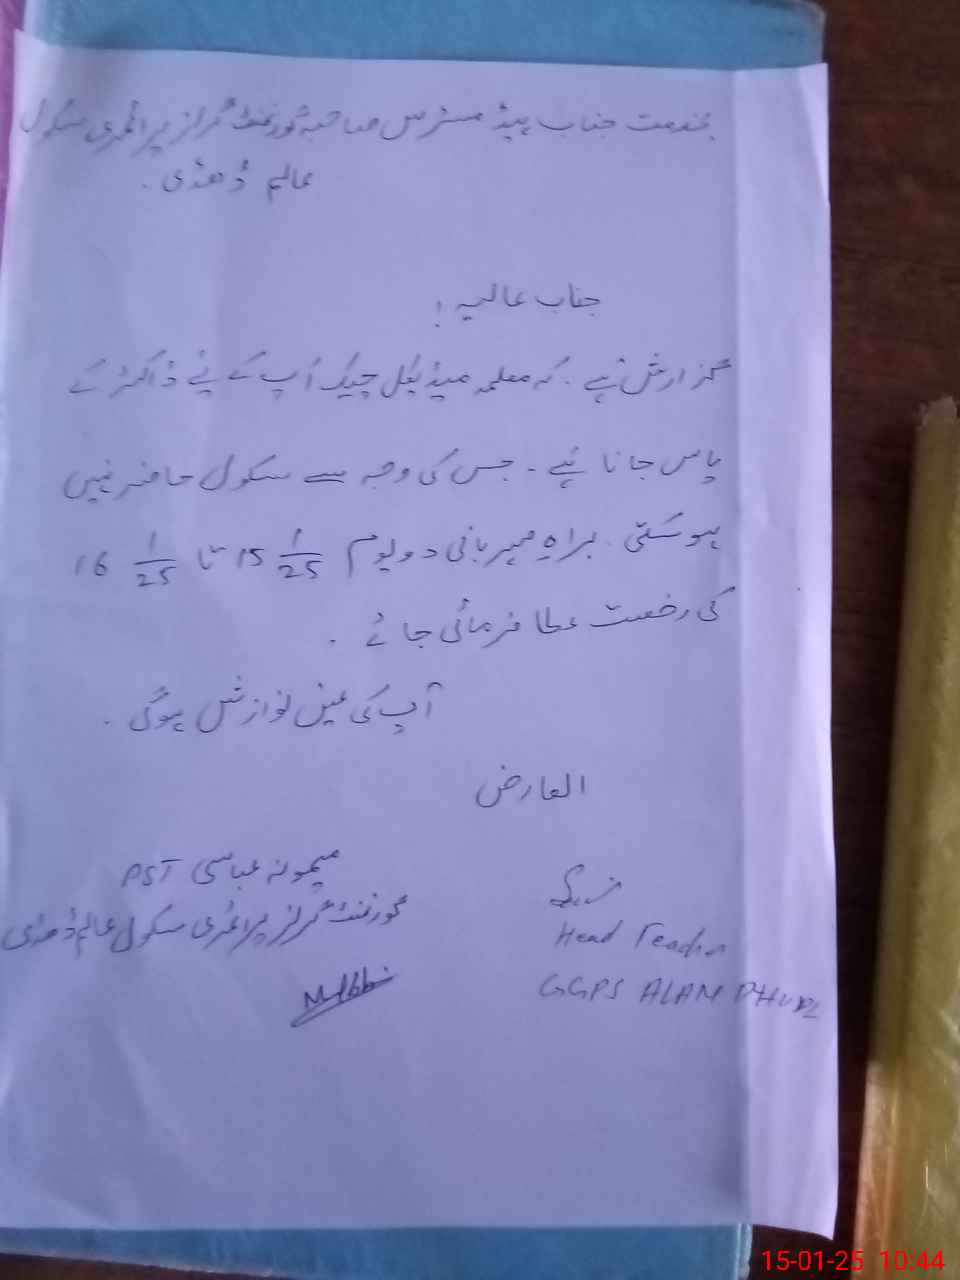 بخدمت جناب ہیڈ مسٹرس صاحبہ گورنمنٹ گرلز پرائمری سکول
عالم ڈھڈی .
جناب عالیہ !
گزارش ہے . کہ معلمہ میڈیکل چیک اَپ کے لئے ڈاکٹر کے
پاس جانا ہے . جس کی وجہ سے سکول حاضر نہیں
ہو سکتی . براہِ مہربانی دو یوم 15 1/25 تا 16 1/25
کی رخصت عطا فرمائی جائے .
آپ کی عین نوازش ہوگی .
العارض
میمونہ عباسی PST
گورنمنٹ گرلز پرائمری سکول عالم ڈھڈی
Head Teacher
GGPS ALAM
15-01-25 10:44